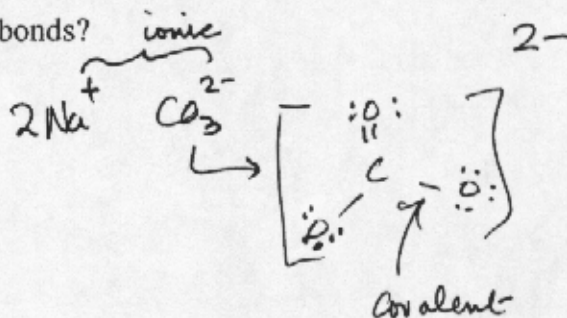 bonds? ionic
2Na⁺ CO₃²⁻
2-
:O:
||
C
O O
covalent